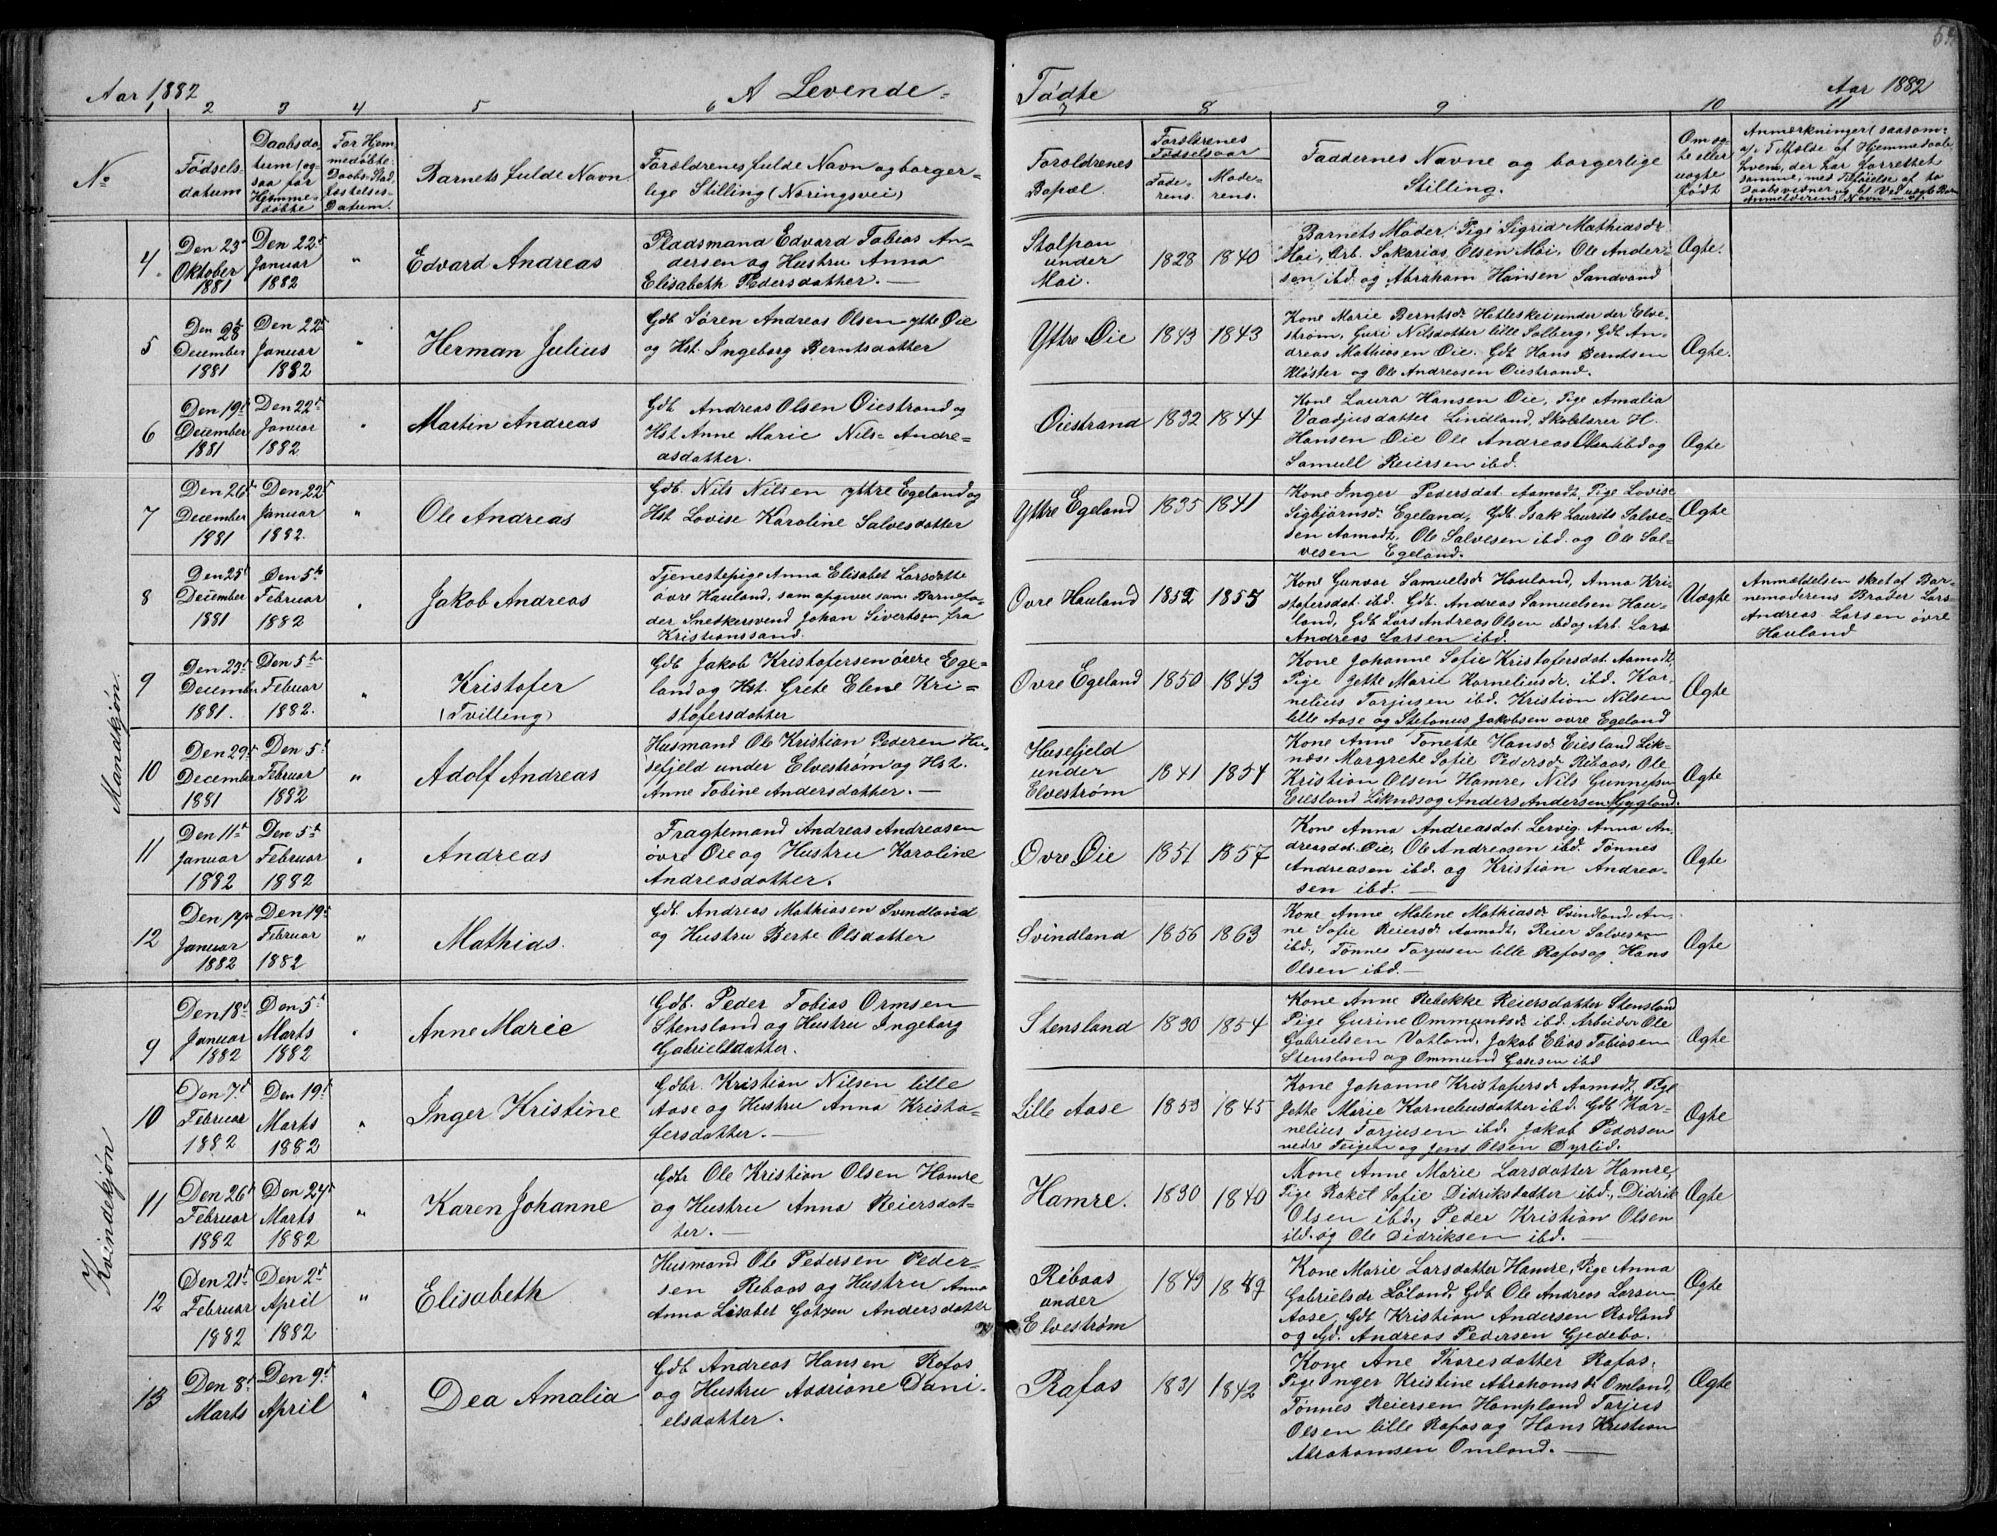 Aar 1882
A Levende
Fødte
Aar 1882
1 2 3 4 5 6 7 8 9 10 11
No
Fødsels-
datum
Daabsda-
tum (og-
saa for
Hjemme-
døbte
For Hjem-
medøbte:
Daabs-Stad
festelses-
Datum.
Barnets fulde Navn
Forældrenes fulde Navn og borger-
lige Stilling (Næringsvei)
Forældrenes
Bopæl.
Forældrenes
Fødselsaar
Fade-
rens.
Mode-
rens.
Faddernes Navne og borgerlige
Stilling.
Om æg-
te eller
uægte
født
Anmærkninger (saasom
Mandkjøn.
4.
Den 23d
Oktober
1881
Den 22d
Januar
1882
"
Edvard Andreas
Pladsmand Edvard Tobias An-
dersen og Hustru Anna
Elisabeth Pedersdatter.
Stolpan
under
Moi.
1828
1840
Barnets Moder, Pige Sigrid Mathiasd:
Moi, Arb. Sakarias Olsen Moi, Ole Ander-
sen ibd og Abraham Hansen Sandvand
Ægte.
5
Den 28
December
1881
Den 22d
Januar
1882
"
Herman Julius
Gdb Søren Andreas Olsen ytte Øie
og Hst. Ingeborg Berntsdatter
Yttre Øie
1843
1843
Kone Marie Berntsd: Hetleskei under der Elve-
strøm, Guri Nilsdatter lille Salberg, Gdb An-
dreas Mathiasen Øie. Gdb Hans Berntsen
Kløster og Ole Andreasen Øiestrand.
Ægte
6
Den 19d
December
1881
Den 22d
Januar
1882
"
Martin Andreas
Gdb Andreas Olsen Øiestrand og
Hst Anne Marie Nils- Andre-
asdatter.
Øiestrand
1832
1844
Kone Laura Hansen Øie, Pige Amalia
Vaadjusdatter Lindland, Skolelærer H.
Hansen Øie Ole Andreas Olsen ibd og
Samuell Reiersen ibd.
Ægte
7
Den 26d
December
1881
Den 22d
Januar
1882.
"
Ole Andreas
Gdb. Nils Nilsen yttre Egeland og
Hst Lovise Karoline Salvesdatter
Yttre Egeland
1835
1841
Kone Inger Pedersdat. Aamodt, Pige Lovise
Sigbjørnsd. Egeland, Gdb. Isak Laurits Salve-
sen Aamodt, Ole Salvesen ibd. og Ole Sal-
vesen Egeland.
Ægte
8
Den 25d
December
1881
Den 5te
Februar
1882
"
Jakob Andreas
Tjenestepige Anna Elisabet Larsdatte
øvre Hauland, som opgiver som Barnefa-
der Snedkersvend Johan Sivertsen fra
Kristianssand.
Øvre Hauland
1852
1857
Kone Gunvor Samuelsd: Hauland, Anna Kri-
stofersdat. ibd. Gdb. Andreas Samuelsen Hau-
land, Gdb Lars Andreas Olsen ibd og Arb. Lars
Andreas Larsen ibd.
Uægte
Anmeldelsen sket af Bar-
nemoderens Broder Lars
Andreas Larsen øvre
Hauland
9
Den 23d
December
1881.
Den 5te
Februar
1882.
"
Kristofer
(Tvilling)
Gdb Jakob Kristofersen øvre Ege-
land og Hst. Grete Elene Kri-
stofersdatter
Øvre Egeland
1850
1843
Kone Johanne Sofie Kristofersdat. Aamodt,
Pige Jette Marie Korneliusd: ibd. Kor-
nelius Torjusen ibd. Kristian Nilsen
lille Aase og Stefanus Jakobsen øvre Egeland
Ægte
10
Den 29d
December
1881
Den 5d
Februar
1882
"
Adolf Andreas
Husmand Ole Kristian Pedersen Hu-
sefjeld under Elvestrøm og Hst.
Anne Tobine Andersdatter.
Husefjeld
under
Elvestrøm
1841
1854
Kone Anne Tonette Hansd: Eiesland Lik-
næs, Margrete Sofie Pedersd: Ribaas, Ole
Kristian Olsen Hamre, Nils Gunnufsen
Eiesland Liknæs og Anders Andersen Mygland.
Ægte
11
Den 11te
Januar
1882
Den 5d
Februar
1882
"
Andreas
Fragtemand Andreas Andreasen
øvre Øie og Hustru Karoline
Andreasdatter.
Øvre Øie
1851
1857
Kone Anna Andreasdat. Lervig, Anna An-
dreasdat. Øie, Ole Andreasen ibd. Tønnes
Andreasen ibd. og Kristian Andrea-
sen ibd.
Ægte
12
Den 17d
Januar
1882
Den 19d
Februar
1882
"
Mathias.
Gdb. Andreas Mathiasen Svindland
og Hustru Berte Olsdatter
Svindland
1856
1863
Kone Anne Malene Mathiasd: Svindland, An-
ne Sofie Reiersd: Aamodt, Reier Salvesen
ibd., Tønnes Torjusen lille Rafos og Hans
Olsen ibd.
Ægte
Kvindekjøn
9
Den 18d
Januar
1882
Den 5d
Marts
1882
"
Anne Marie
Gdb. Peder Tobias Ormsen
Stensland og Hustru Ingeborg
Gabrielsdatter.
Stensland
1830
1854
Kone Anne Rebekke Reiersdatter Stensland
Pige Gurine Ommundsd: ibd. Arbeider Ole
Gabrielsen Vatland, Jakob Elias Tobiasen
Stensland og Ommund ibd
Ægte
10
Den 7d
Februar
1882
Den 19d
Marts
1882
"
Inger Kristine
Gdbr. Kristian Nilsen lille
Aase og Hustru Anna Kristo-
fersdatter.
Lille Aase
1853
1845
Kone Johanne Kristofersd: Aamodt, Pige
Jette Marie Korneliusdatter ibd. Gdb Kor-
nelius Torjusen ibd. Jakob Pedersen
nedre Feigen og Jens Olsen Dyrlid.
Ægte
11
Den 26d
Februar
1882
Den 24d
Marts
1882
"
Karen Johanne
Gdbr Ole Kristian Olsen Hamre
og Hustru Anna Reiersdat-
ter.
Hamre.
1830
1840
Kone Anne Marie Larsdatter Hamre,
Pige Rakel Sofie Didriksdatter ibd., Didrik
Olsen ibd., Peder Kristian Olsen
ibd. og Ole Didriksen ibd.
Ægte
12
Den 21d
Februar
1882
Den 2d
April
1882
"
Elisabeth
Husmand Ole Pedersen Peder-
sen Rebaas og Hustru Anna
Anna Lisabet Andersdatte
Ribaas
under
Elvestrøm
1849
1849
Kone Marie Larsdatter Hamre, Pige Anna
Gabrielsd: Løland, Gdb Ole Andreas Larsen
Aase, Gdb Kristian Andersen Rødland
og Gd. Andreas Pedersen Gjedebo.
Ægte
13
Den 8d
Marts
Den 9d
April
"
Dea Amalia
Gdb Andreas Hansen Rafos
og Hustru Adriane Dani-
elsdatter.
Rafos
1831
1842
Kone Ane Thoresdatter Rafos,
Pige Inger Kristine Abrahamsd: Omland,
Tønnes Reiersen Hampland Torjus
Olsen lille Rafos og Hans Kristian
Abrahamsen Omland.
Ægte